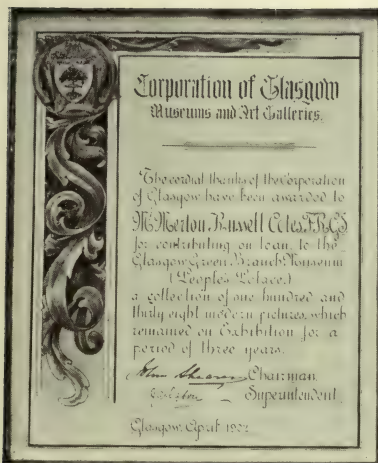 Corporation of Glasgow
Museums and Art Galleries.
The cordial thanks of the Corporation
of Glasgow have been awarded to
Mr Merton Russell Cotes, F.R.G.S
for contributing on loan, to the
Glasgow Green Branch Museum
(People's Palace.)
a collection of one hundred and
thirty eight modern pictures, which
remained on Exhibition for a
period of three years.
John Shearer Chairman.
Superintendent.
Glasgow, April 1902